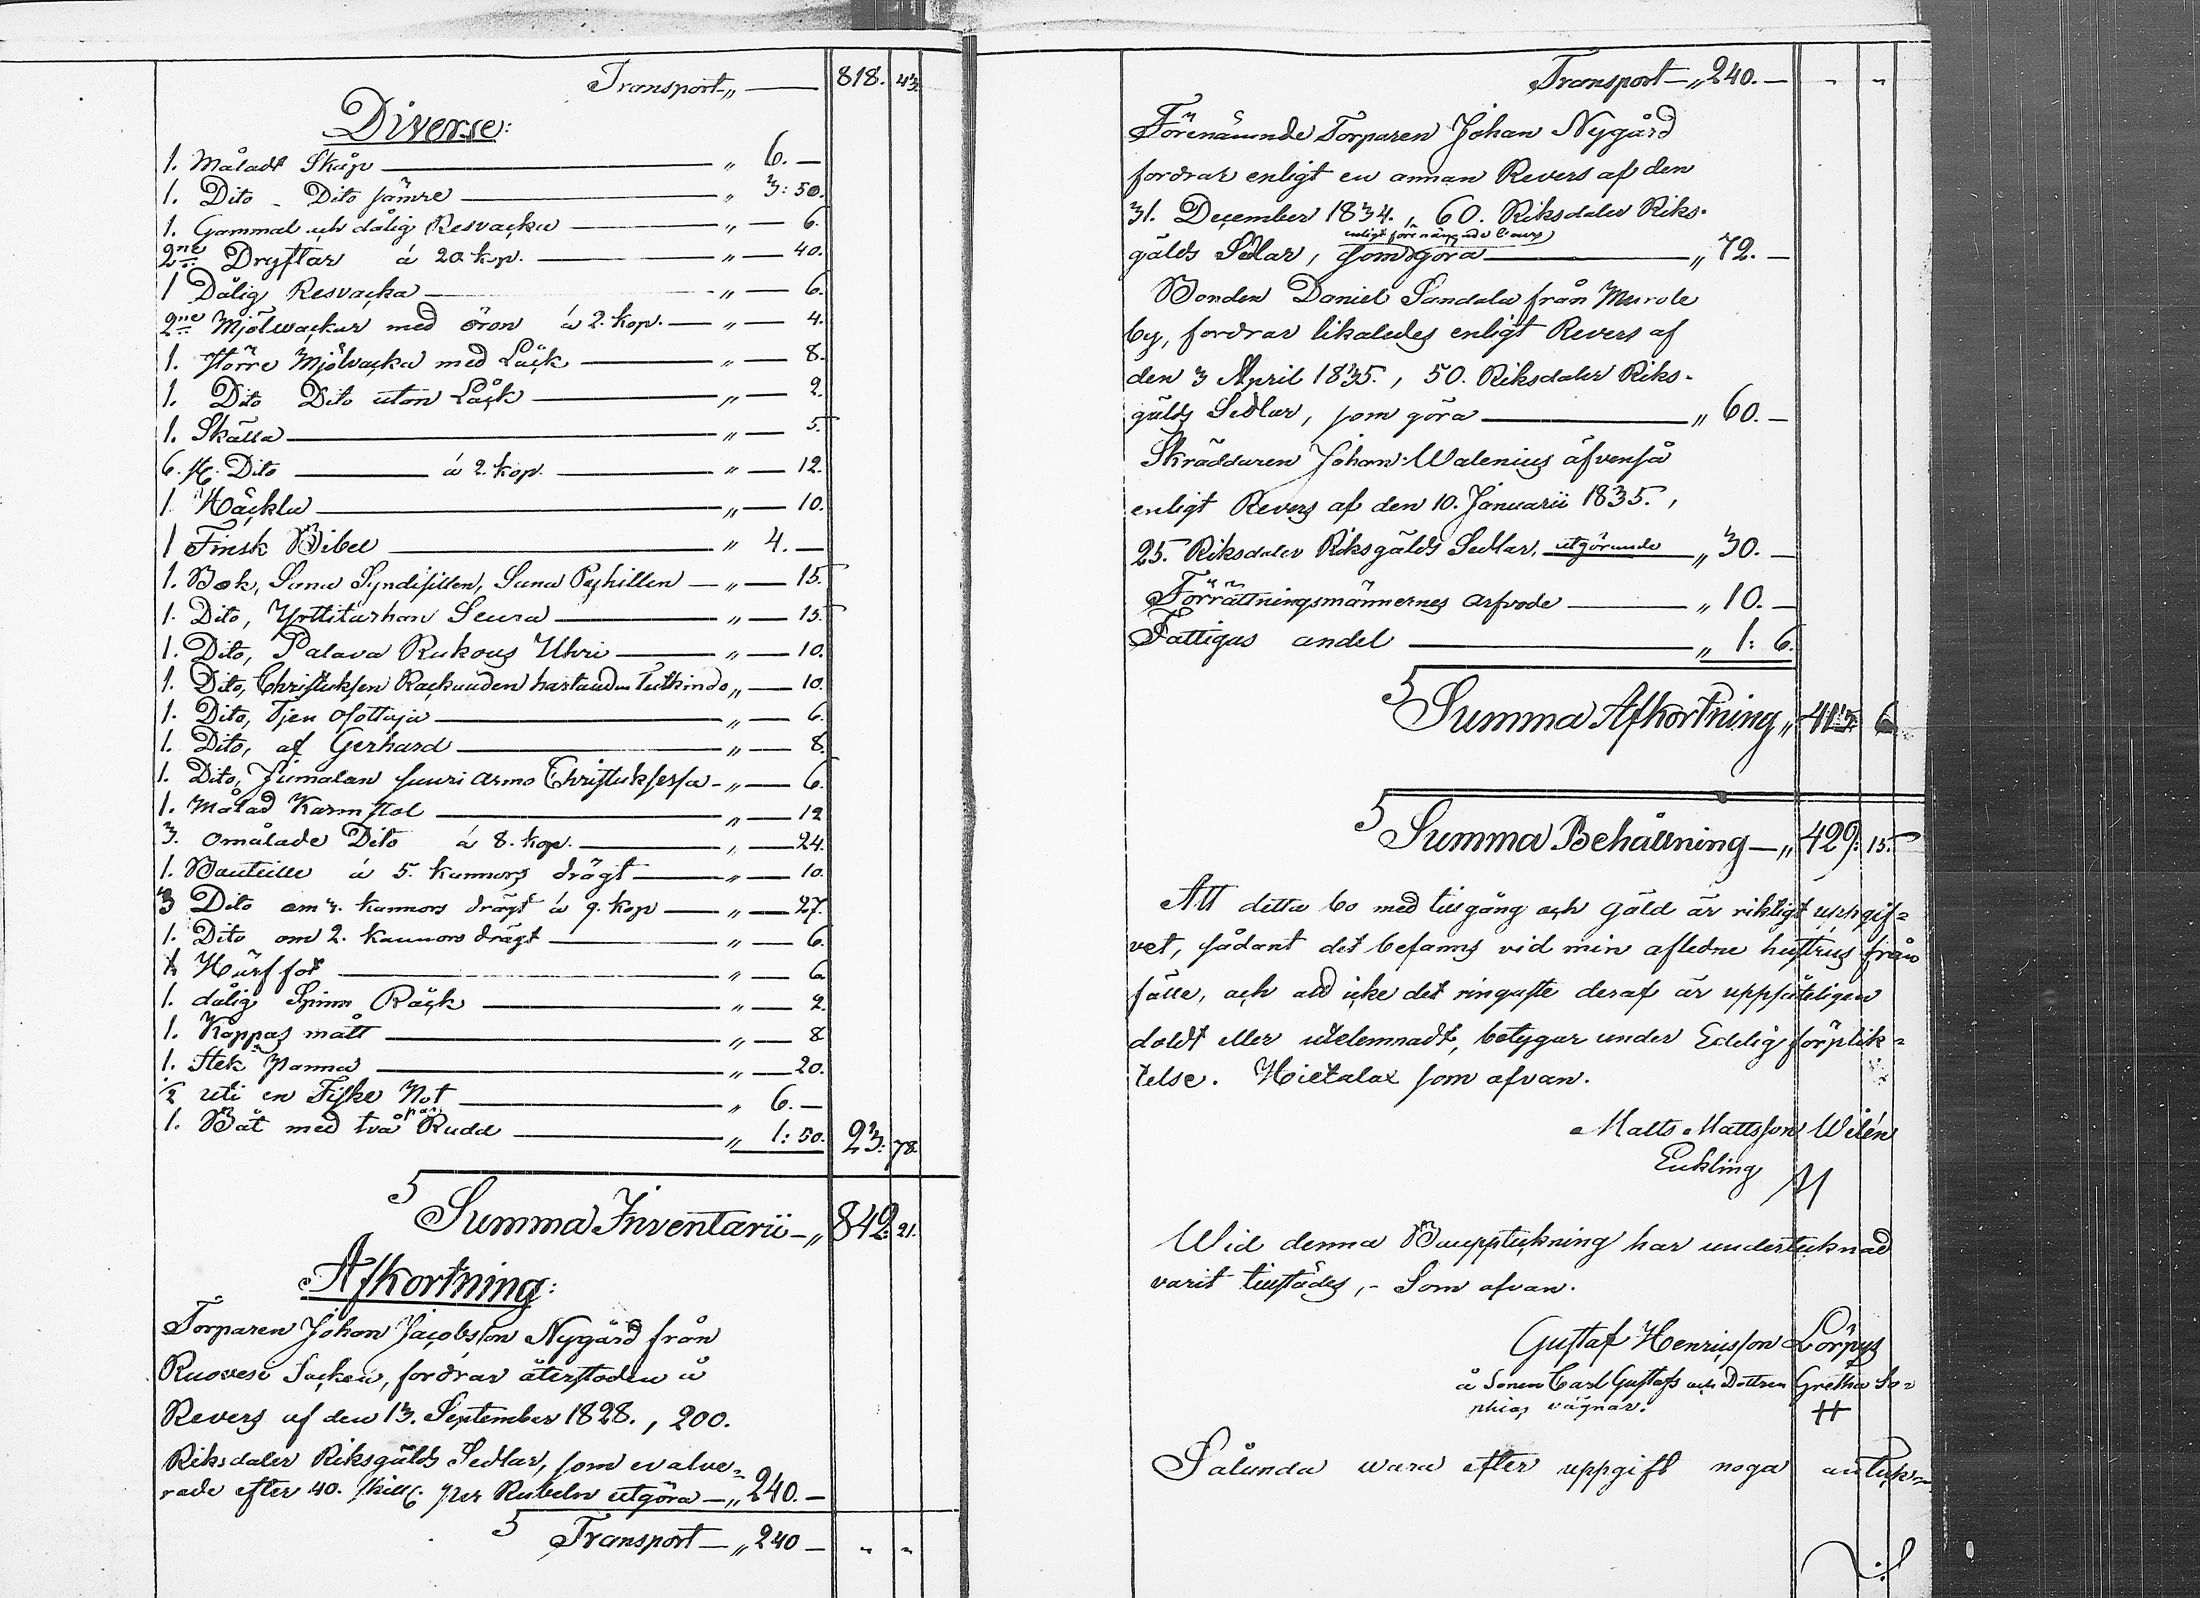 Transport „ — 818. 43.
Diverse:
1. Måladt Skåp — „ 6. —
1. Dito - Dito sämre — „ 3: 50.
1. Gammal och dålig Resvacka — „ — 6.
2ne Dryftar á 20. kop. — „ — 40.
1 Dålig Resvacka — „ — 6.
2ne Mjölwackar med öron á 2. kop. — „ — 4.
1. större Mjölvacka med Låck — „ — 8.
1. Dito Dito utan Låck — „ — 2.
1. Skälla — „ — 5.
6. st. Dito — á 2. kop. — „ — 12.
1. Häckla — „ — 10.
1 Finsk Bibel — „ 4. —
1. Bok, Sana Syndisillen, Sana Pyhillen — „ — 15.
1. Dito, Yrttitarhan Seura — „ — 15.
1. Dito, Palava Rukous Uhri — „ — 10.
1. Dito, Christuksen Rackauden hartauden Tutkindo „ — 10.
1. Dito, Tjen Osottaja — „ — 6.
1. Dito, af Gerhard — „ — 8.
1. Dito, Jumalan suuri armo Christuksessa - „ — 6.
1. Målad Karmstol — „ — 12
3. omålade Dito á 8. kop. — „ — 24.
1. Bouteille á 5. kannors drägt — „ — 10.
3 Dito om 3. kannors drägt á 9. kop — „ — 27.
1. Dito om 2. kannors drägt — „ — 6.
1. Härf fot — „ — 6
1. dålig Spinn Råck — „ — 2.
1. Kappas mått — „ — 8
1. Stek Panna — „ — 20.
½ uti en Fiske Not — „ 6. —
1. Båt med två par Rudd — „ 1: 50. 23. 78.
S Summa Inventarii — „ 842. 21.
Afkortning:
Torparen Johan Jacobsson Nygård från
Ruovesi Socken, fordrar återstoden å
Revers af den 13. September 1828., 200.
Riksdaler Riksgälds Sedlar, som evalve=
rade efter 40. skill. per Rubeln utgöra — „ 240. —
S Transport — „ 240 — „ „
Transport — „ 240. — „ „
Förenämnde Torparen Johan Nygård
fordrar enligt en annan Revers af den
31. December 1834., 60. Riksdaler Riks-
enligt förenämnde Cours
gälds Sedlar, som göra — „ 72. —
Bonden Daniel Sandala från Murole
by, fordrar likaledes enligt Revers af
den 3 April 1835., 50. Riksdaler Riks-
gälds Sedlar, som göra — „ 60. —
Skräddaren Johan Walenius äfvenså
enligt Revers af den 10. Januarii 1835.,
25. Riksdaler Riksgälds Sedlar, utgörande — „ 30. —
Förrättningsmännernes arfvode — „ 10. —
Fattigas andel — „ 1: 6.
S Summa Afkortning „ 413. 6
S Summa Behållning — „ 429. 15.
Att detta bo med tillgång och gäld är riktigt uppgif=
vet, sådant det befanns vid min aflidne hustrus från
fälle, och att icke det ringaste deraf är uppsåteligen
doldt eller utelemnadt, betygar under Edelig förplik=
telse. Hietalax som ofvan.
Matts Mattsson Wilén
Enkling
Wid denna Bouppteckning har undertecknad
varit tillstädes, - Som ofvan.
Gustaf Henricsson Lörpys
å Sonen Carl Gustafs och Dottren Gretha So=
phias vägnar.
Sålunda wara efter uppgift noga anteck=